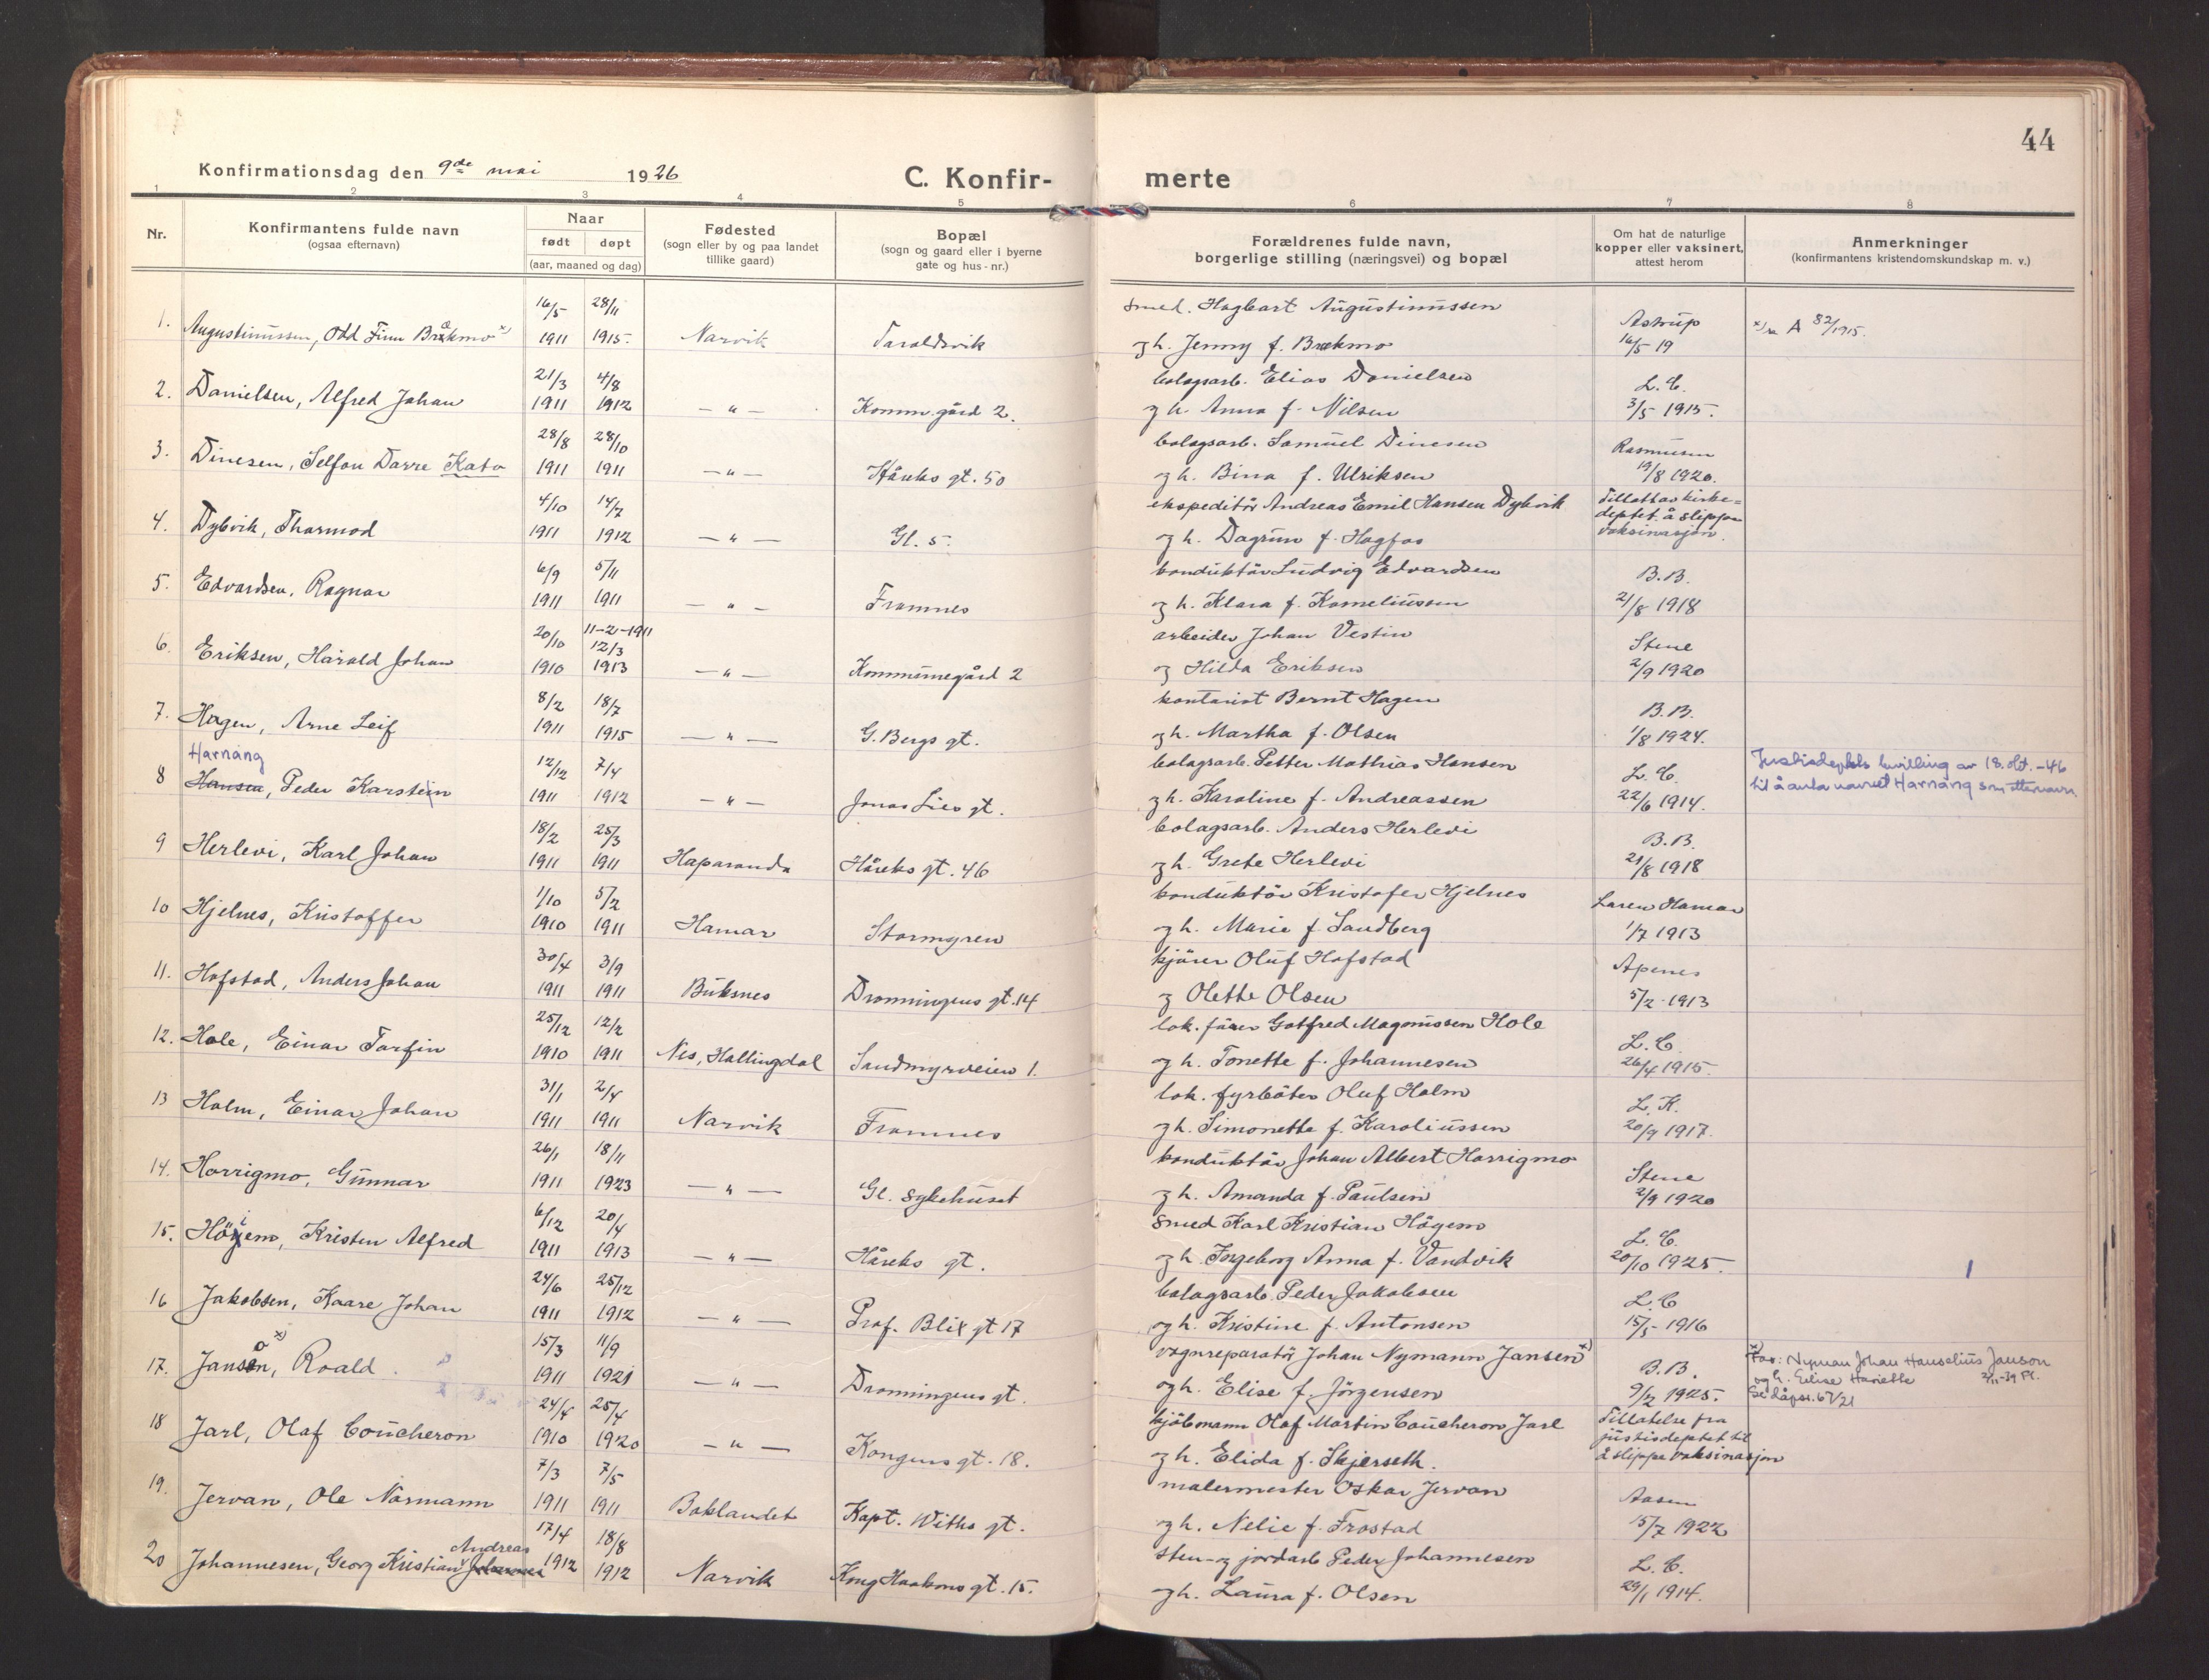 44
Konfirmationsdag den 9de mai 1926
C. Konfir-
merte
1 2 3 4 5 6 7 8
Nr.
Konfirmantens fulde navn
(ogsaa efternavn)
Naar
født
døpt
(aar, maaned og dag)
Fødested
(sogn eller by og paa landet
tillike gaard)
Bopæl
(sogn og gaard eller i byerne
gate og hus-nr.)
Forældrenes fulde navn,
borgerlige stilling (næringsvei) og bopæl
Om hat de naturlige
kopper eller vaksinert,
attest herom
Anmerkninger
(konfirmantens kristendomskundskap m. v.)
16/5 28/11 smed. Hagbart Augustinussen
1. Augustinussen, Odd Finn Brækmo x) 1911 1915. Narvik Taraldsvik og h. Jenny f. Brekmo Astrup 16/5 19 x) A 82/1915.
21/3 4/8 bolagsarb. Elias Danielsen
2. Danielsen, Alfred Johan 1911 1912 —"— Komm.gård 2. og h. Anna f. Nilsen L. C. 3/5 1915.
28/8 28/10 bolagsarb. Samuel Dinesen
3. Dinesen, Selfon Darre Kato 1911 1911 —"— Håreks gt. 50 og h. Bina f. Ulriksen Rasmussen 19/8 1920.
4/10 14/7 ekspeditör Andreas Emil Hansen Dybvik
4. Dybvik, Tharmod 1911 1912 —"— Gl. 5. og h. Dagrun f. Hagfos Tillatt av kirke=
deptet. å slippe
vaksinasjon.
6/9 5/11 konduktör Ludvig Edvardsen
5. Edvardsen, Ragnar 1911 1911 —"— Framnes og h. Klara f. Korneliussen B.B. 21/8 1918
20/10 11-2-1911 12/3 arbeider Johan Vestin
6. Eriksen, Harald Johan 1910 1913 —"— Kommunegård 2 og Hilda Eriksen Stene 2/9 1920
8/2 18/7 kontorist Bernt Hagen
7. Hagen, Arne Leif 1911 1915 —"— G. Bergs gt. og h. Martha f. Olsen B.B. 1/8 1924.
Harnang 12/12 7/4 bolagsarb. Petter Mathias Hansen Justisdeptets bevilling av 18. okt. -46
8 Hansen, Peder Karstein 1911 1912 —"— Jonas Lies gt. og h. Karoline f. Andreassen L. C. 22/6 1914. til å anta navnet Harnang som etternavn.
18/2 25/3 bolagsarb. Anders Herlevi
9 Herlevi, Karl Johan 1911 1911 Haparanda Håreks gt. 46 og h. Grete Herlevi B.B. 21/8 1918
1/10 5/2 konduktör Kristofer Hjelnes
10 Hjelnes, Kristoffer 1910 1911 Hamar Stormyren og h. Marie f. Sandberg Laren Hamar 1/7 1913
30/4 3/9 kjörer Oluf Hofstad
11. Hofstad, Anders Johan 1911 1911 Buksnes Dronningens gt. 14 og Olette Olsen Apenes 5/2 1913
25/12 12/2 lok. förer Gotfred Magnussen Hole
12. Hole, Einar Torfin 1910 1911 Nes, Hallingdal Sandmyrveien 1. og h. Tonette f. Johannesen L. C. 26/4 1915.
31/1 2/4 lok. fyrböter Oluf Holm
13 Holm, Einar Johan 1911 1911 Narvik Framnes og h. Simonette f. Karoliussen L. K. 20/9 1917.
26/1 18/11 konduktör Johan Albert Horrigmo
14. Horrigmo, Gunnar 1911 1923 —"— Gl. sykehuset og h. Amanda f. Paulsen Stene 2/9 1920
6/12 20/4 smed Karl Kristian Högemo
15. Höiemo, Kristen Alfred 1911 1913 —"— Håreks gt. og h. Ingeborg Anna f. Vandvik L. C. 20/10 1925.
24/6 25/12 bolagsarb. Peder Jakobsen
16 Jakobsen, Kaare Johan 1911 1912 —"— Prof. Blix gt 17 og h. Kristine f. Antonsen L. C 15/5 1916
15/3 11/9 vognreparatör Johan Nymann Jansen x)
17. Janson, x) Roald 1911 1921 —"— Dronningens gt. og h. Elise f. Jörgensen B. B. 9/2 1925. x) Far: Nyman Johan Hanselius Janson
og h. Elise Hariette 2/11-39 Pl.
Se dåpsr. 67/21
24/4 25/4 kjöbmann Olaf Martin Coucheron Jarl
18 Jarl, Olaf Coucheron 1910 1920 —"— Kongens gt. 18. og h. Elida f. Skjerseth. Tillatelse fra
justisdeptet til
å slippe vaksinasjon
7/3 7/5 malermester Oskar Jervan
19. Jervan, Ole Normann 1911 1911 Baklandet Kapt. Withs gt. og h. Nelie f. Frostad Aasen 15/7 1922
Andreas 17/4 18/8 sten- og jordarb Peder Johannesen
20 Johannesen, Georg Kristian 1912 1912 Narvik Kong Haakons gt. 15. og h. Laura f. Olsen L. C. 29/1 1914.